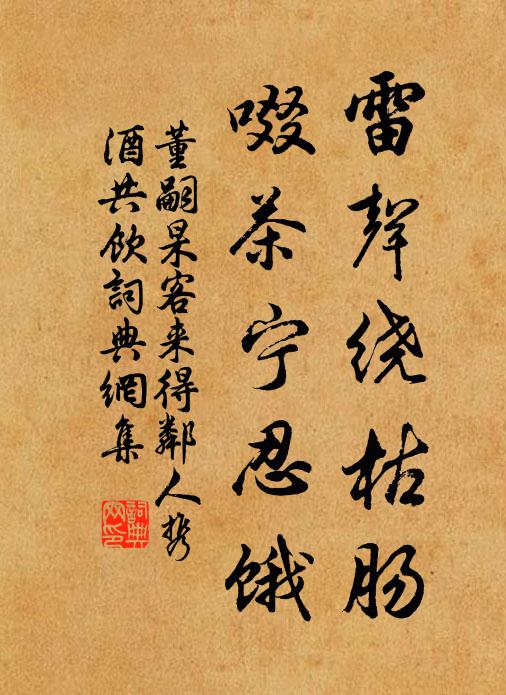 雷聲绕枯肠
啜茶宁忍饿
董嗣杲客来得鄰人携
酒共飲詞典網集
詞典网印